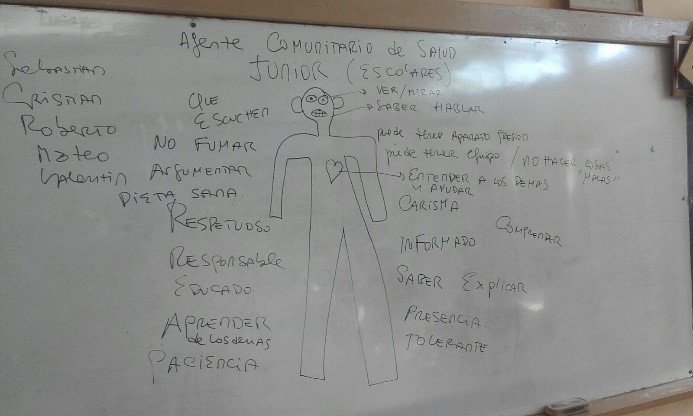 Agente Comunitario de Salud
Junior (Escolares)
Sebastian
Cristian
Roberto
Mateo
Valentin
Que
Escuchen
No fumar
Argumentar
Dieta sana
Respetuoso
Responsable
Educado
Aprender
de los demas
Paciencia
Ver/mirar
Saber hablar
puede tener aparato
puede tener chupo / no hacer cosas
"malas"
Entender a los demas
y ayudar
Carisma
Comprender
Informado
Saber explicar
Presencia
Tolerante